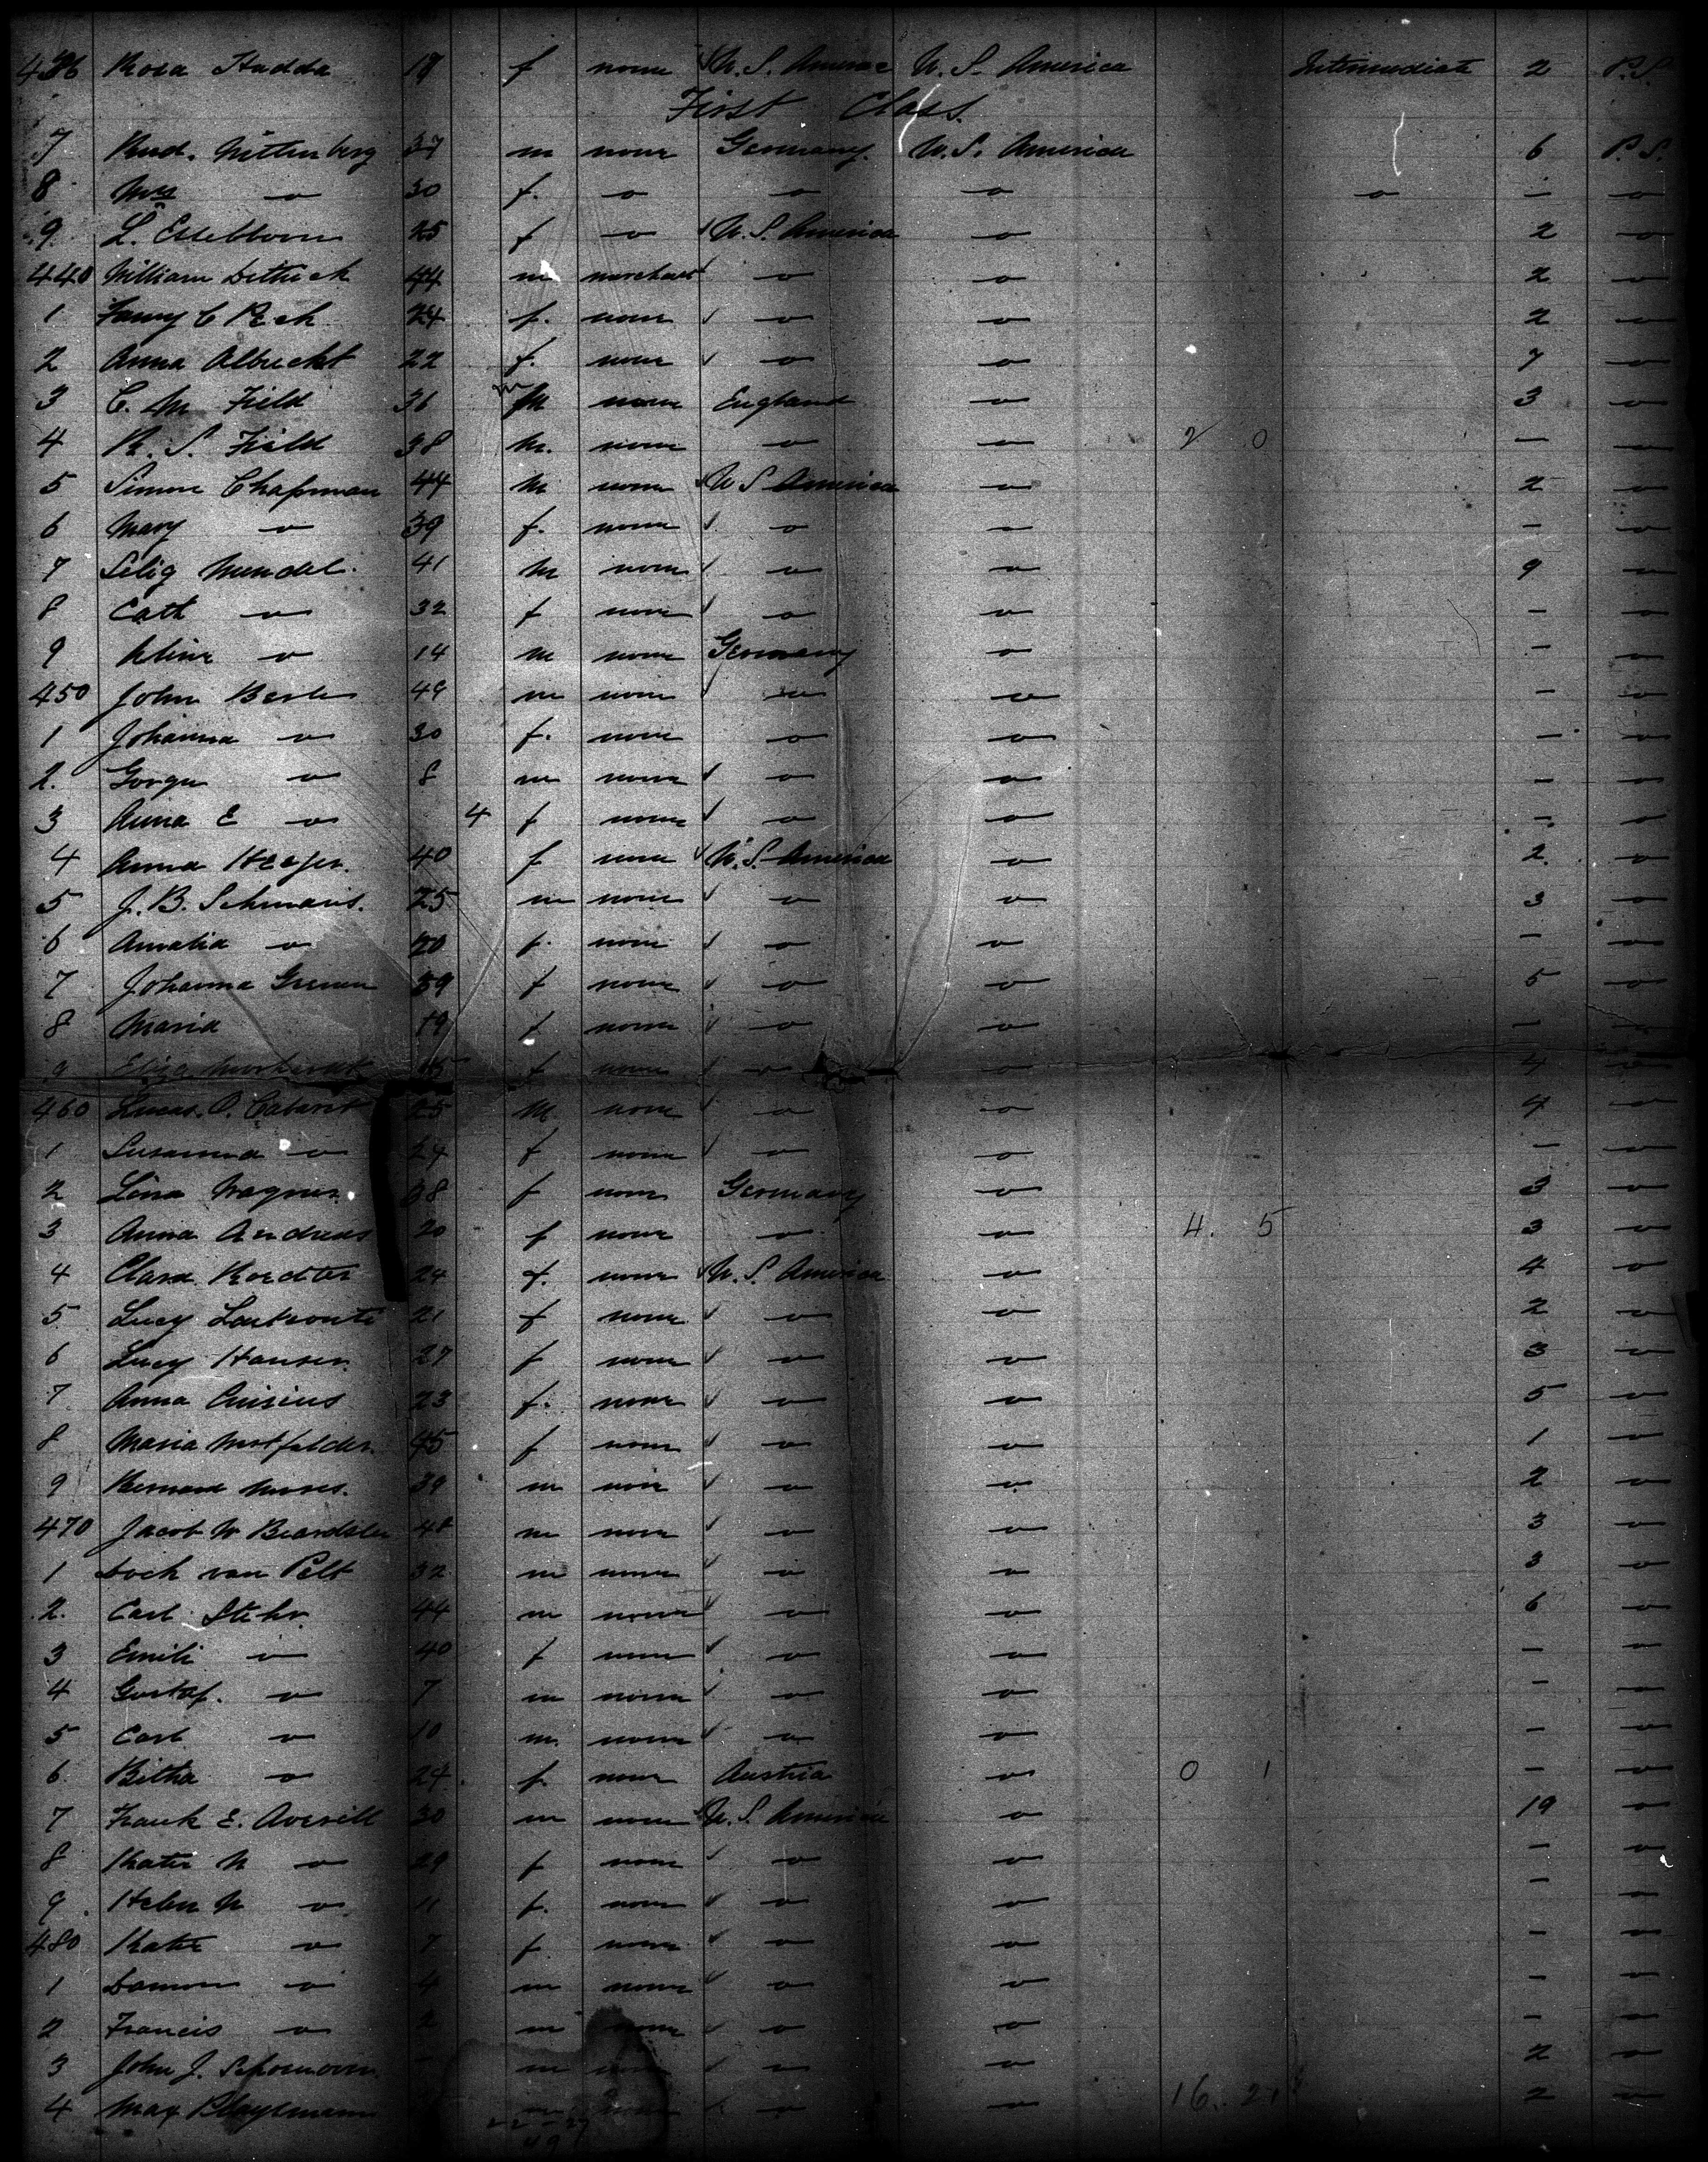 436 Rosa Hadda 19 f none U. S. America U. S. America Intermediate 2 P.S.
First Class.
7 Rud. Wittenberg 37 m none Germany. U. S. America 6 P. S.
8 Mrs " 30 f. " " " " — "
9 L. 25 f " U. S. America " 2 "
440 William Dethick 44 m merchant " " 2 "
1 Fanny C Peck 24 f. none " " 2 "
2 Anna Albrecht 22 f. none " " 7 "
3 C. M Field 36 m none England " 3 "
4 R. S. Field 38 m. none " " 2 0 — "
5 Simon Chapman 44 m none U S America " 2 "
6 Mary " 39 f. none " " — "
7 Selig Mendel. 41 m none " " 9 "
8 Cath " 32 f none " " — "
9 " 14 m none Germany " — "
450 John 49 m none " " — "
1 Johanna " 30 f. none " " — "
2. " 8 m none " " — "
3 Anna E " 4 f none " " — "
4 Anna 40 f none U. S. America " 2. "
5 J. B. 25 m none " " 3 "
6 Amalia " 20 f. none " " — "
7 Johanna 59 f none " " 5 "
8 Maria 19 f none " " — "
9 f none " " 4 "
460 Lucas. O. 25 m none " " 4 "
1 Susanna " 24 f none " " — "
2 Lina Wagner 38 f none Germany " 3 "
3 Anna Andreas 20 f none " " 4. 5 3 "
4 Clara 24 f. none U. S. America " 4 "
5 Lucy 21 f none " " 2 "
6 Lucy Hansen 27 f none " " 3 "
7 Anna 23 f. none " " 5 "
8 Maria 45 f none " " 1 "
9 Bernard Moses. 39 m none " " 2 "
470 Jacob W Beardslee 48 m none " " 3 "
1 van Pelt 32 m none " " 3 "
2. Carl Stehr 44 m none " " 6 "
3 Emili " 40 f none " " — "
4 Gustaf. " 7 m none " " — "
5 Carl " 10 m. none " " — "
6 " 24. f. none Austria " 0 1 — "
7 Frank E. Averill 30 m none U. S. America " 19 "
8 Katie M " 29 f none " " — "
9 Helen M " 11 f. none " " — "
480 Katie " 7 f none " " — "
1 Damon " 4 m none " " — "
2 Francis " 2 m none " " — "
3 John J. m none " " 2 "
4 Max m none " " 16. 21 2 "
22 - 27
49